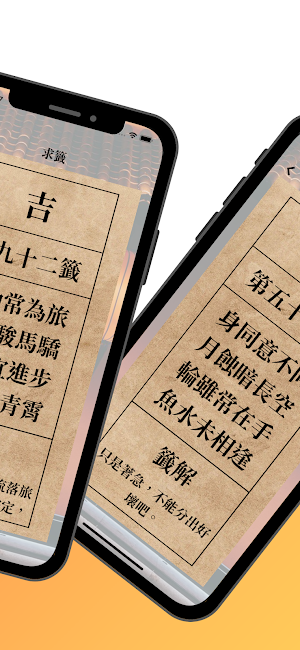 求籤
吉
九十二籤
常為旅
駿馬驕
直進步
青霄
流落旅
定，
第五十
身同意不同
月蝕暗長空
輪雖常在手
魚水未相逢
籤解
只是著急，不能分出好
壞吧。